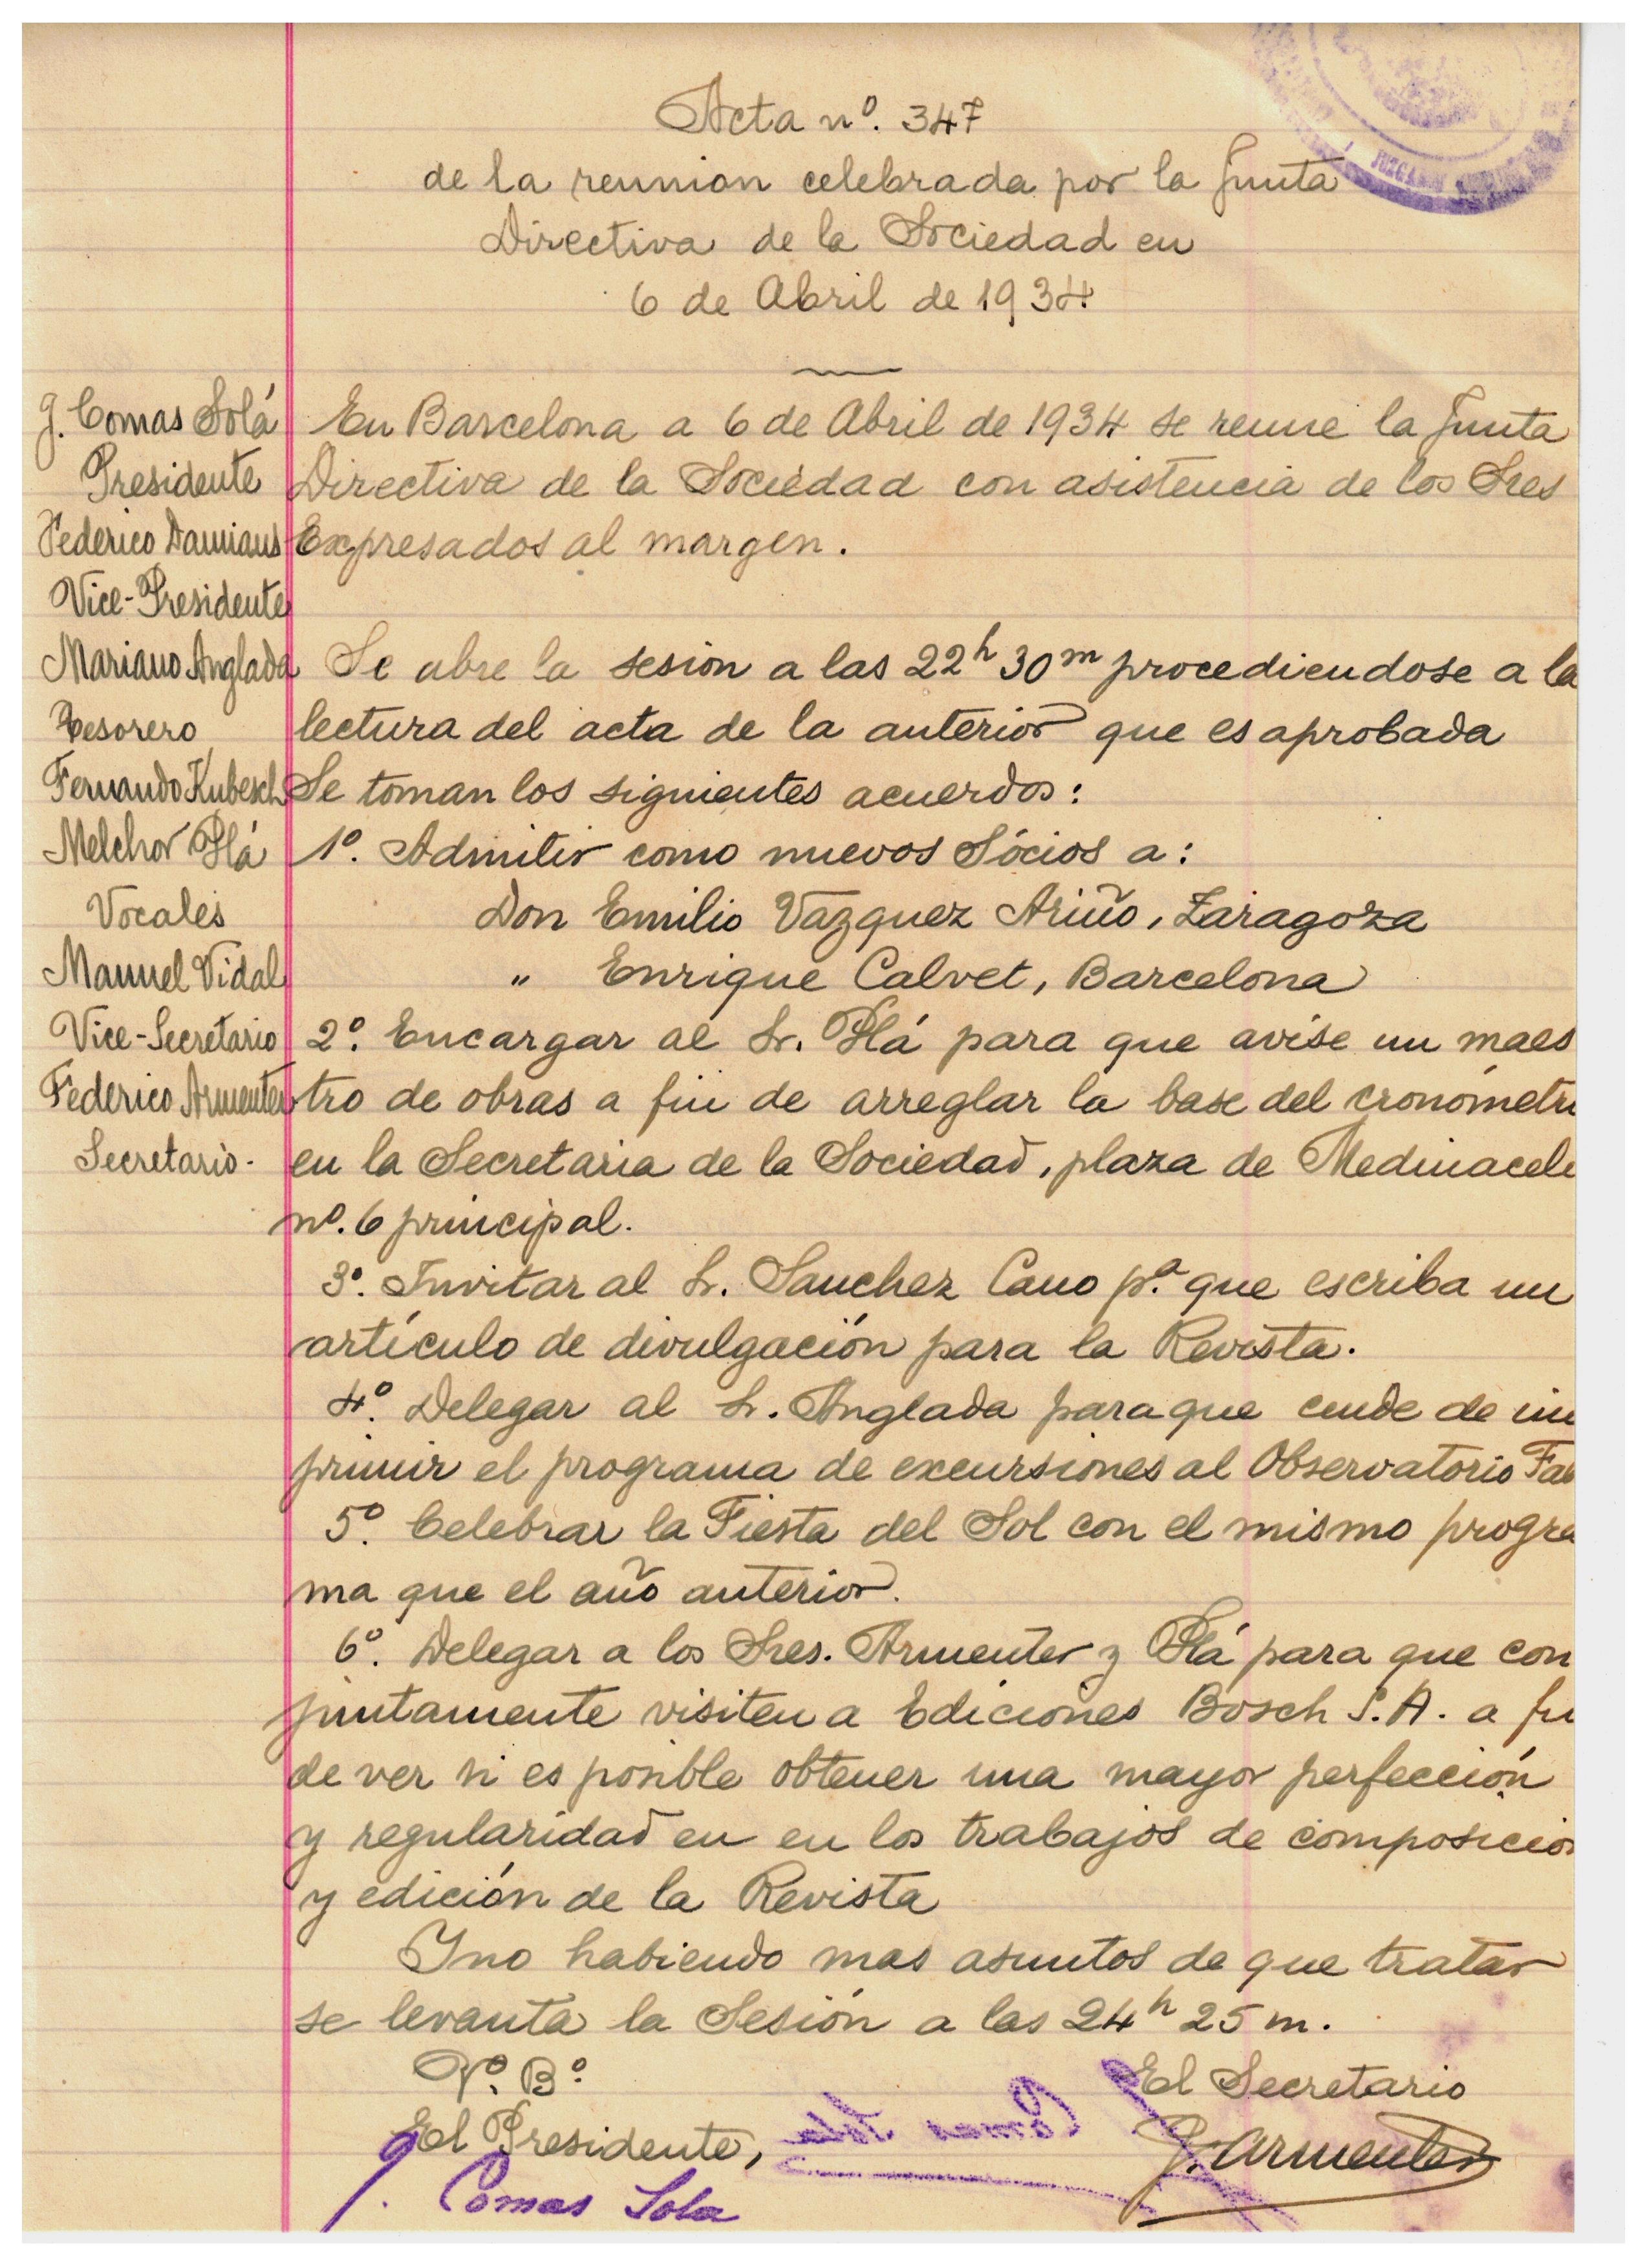 Acta nº. 347
de la reunion celebrada por la Junta
Directiva de la Sociedad en
6 de Abril de 1934
J. Comas Solá
Presidente
Federico Damians
Vice-Presidente
Mariano Anglada
Tesorero
Fernando Kubesch
Melchor Plá
Vocales
Manuel Vidal
Vice-Secretario
Federico Armenter
Secretario.
En Barcelona a 6 de Abril de 1934 se reune la Junta
Directiva de la Sociedad con asistencia de los Sres
Expresados al margen.
Se abre la sesion a las 22h 30m procediendose a la
lectura del acta de la anterior que es aprobada
Se toman los siguientes acuerdos:
1º. Admitir como nuevos Sócios a:
Don Emilio Vázquez Ariño, Zaragoza
" Enrique Calvet, Barcelona
2º. Encargar al Sr. Plá para que avise un maes
tro de obras a fin de arreglar la base del cronómetr
en la Secretaria de la Sociedad, plaza de Medinacel
nº. 6 principal.
3º. Invitar al Sr. Sanchez Cano pª. que escriba un
artículo de divulgación para la Revista.
4º. Delegar al Sr. Anglada para que cuide de im
primir el programa de excursiones al Observatorio Fab
5º. Celebrar la Fiesta del Sol con el mismo progra
ma que el año anterior.
6º. Delegar a los Sres. Armenter y Plá para que con
juntamente visiten a Ediciones Bosch S.A. a fi
de ver si es posible obtener una mayor perfección
y regularidad en en los trabajos de composicio
y edición de la Revista
Y no habiendo mas asuntos de que tratar
se levanta la Sesión a las 24h 25 m.
Vº. Bº
El Presidente,
J. Comas Sola
El Secretario
F. Armenter